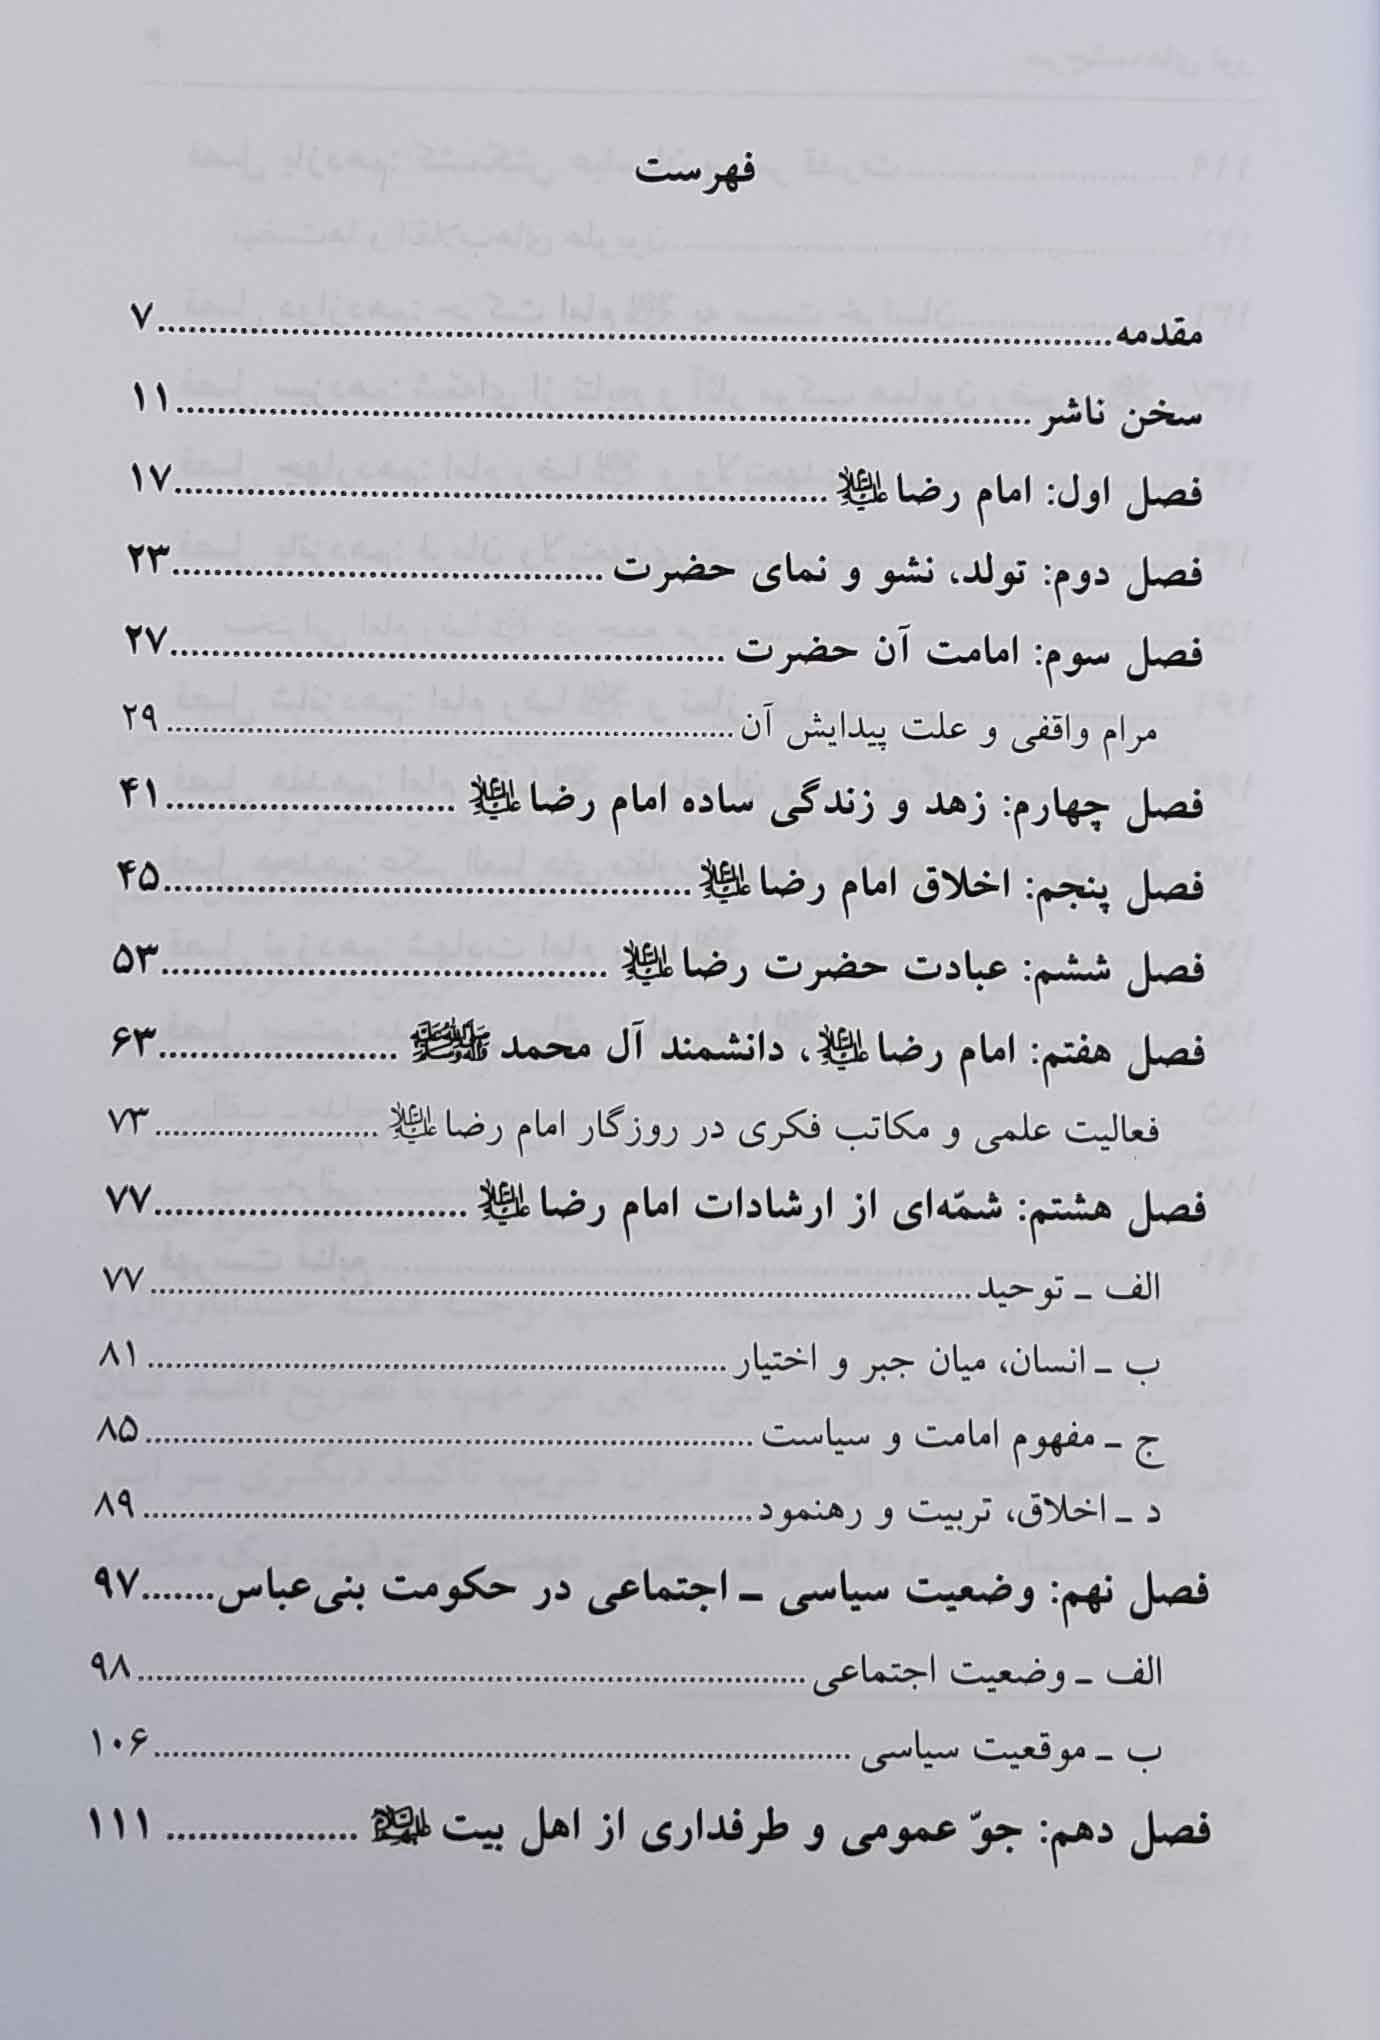 فهرست
مقدمه ........ ۷
سخن ناشر ........ ۱۱
فصل اول: امام رضا علیه‌السلام ........ ۱۷
فصل دوم: تولد، نشو و نمای حضرت ........ ۲۳
فصل سوم: امامت آن حضرت ........ ۲۷
مرام واقفی و علت پیدایش آن ........ ۲۹
فصل چهارم: زهد و زندگی ساده امام رضا علیه‌السلام ........ ۴۱
فصل پنجم: اخلاق امام رضا علیه‌السلام ........ ۴۵
فصل ششم: عبادت حضرت رضا علیه‌السلام ........ ۵۳
فصل هفتم: امام رضا علیه‌السلام، دانشمند آل محمد ﷺ ........ ۶۳
فعالیت علمی و مکاتب فکری در روزگار امام رضا علیه‌السلام ........ ۷۳
فصل هشتم: شمّه‌ای از ارشادات امام رضا علیه‌السلام ........ ۷۷
الف ـ توحید ........ ۷۷
ب ـ انسان، میان جبر و اختیار ........ ۸۱
ج ـ مفهوم امامت و سیاست ........ ۸۵
د ـ اخلاق، تربیت و رهنمود ........ ۸۹
فصل نهم: وضعیت سیاسی ـ اجتماعی در حکومت بنی‌عباس ........ ۹۷
الف ـ وضعیت اجتماعی ........ ۹۸
ب ـ موقعیت سیاسی ........ ۱۰۶
فصل دهم: جوّ عمومی و طرفداری از اهل بیت علیهم‌السلام ........ ۱۱۱